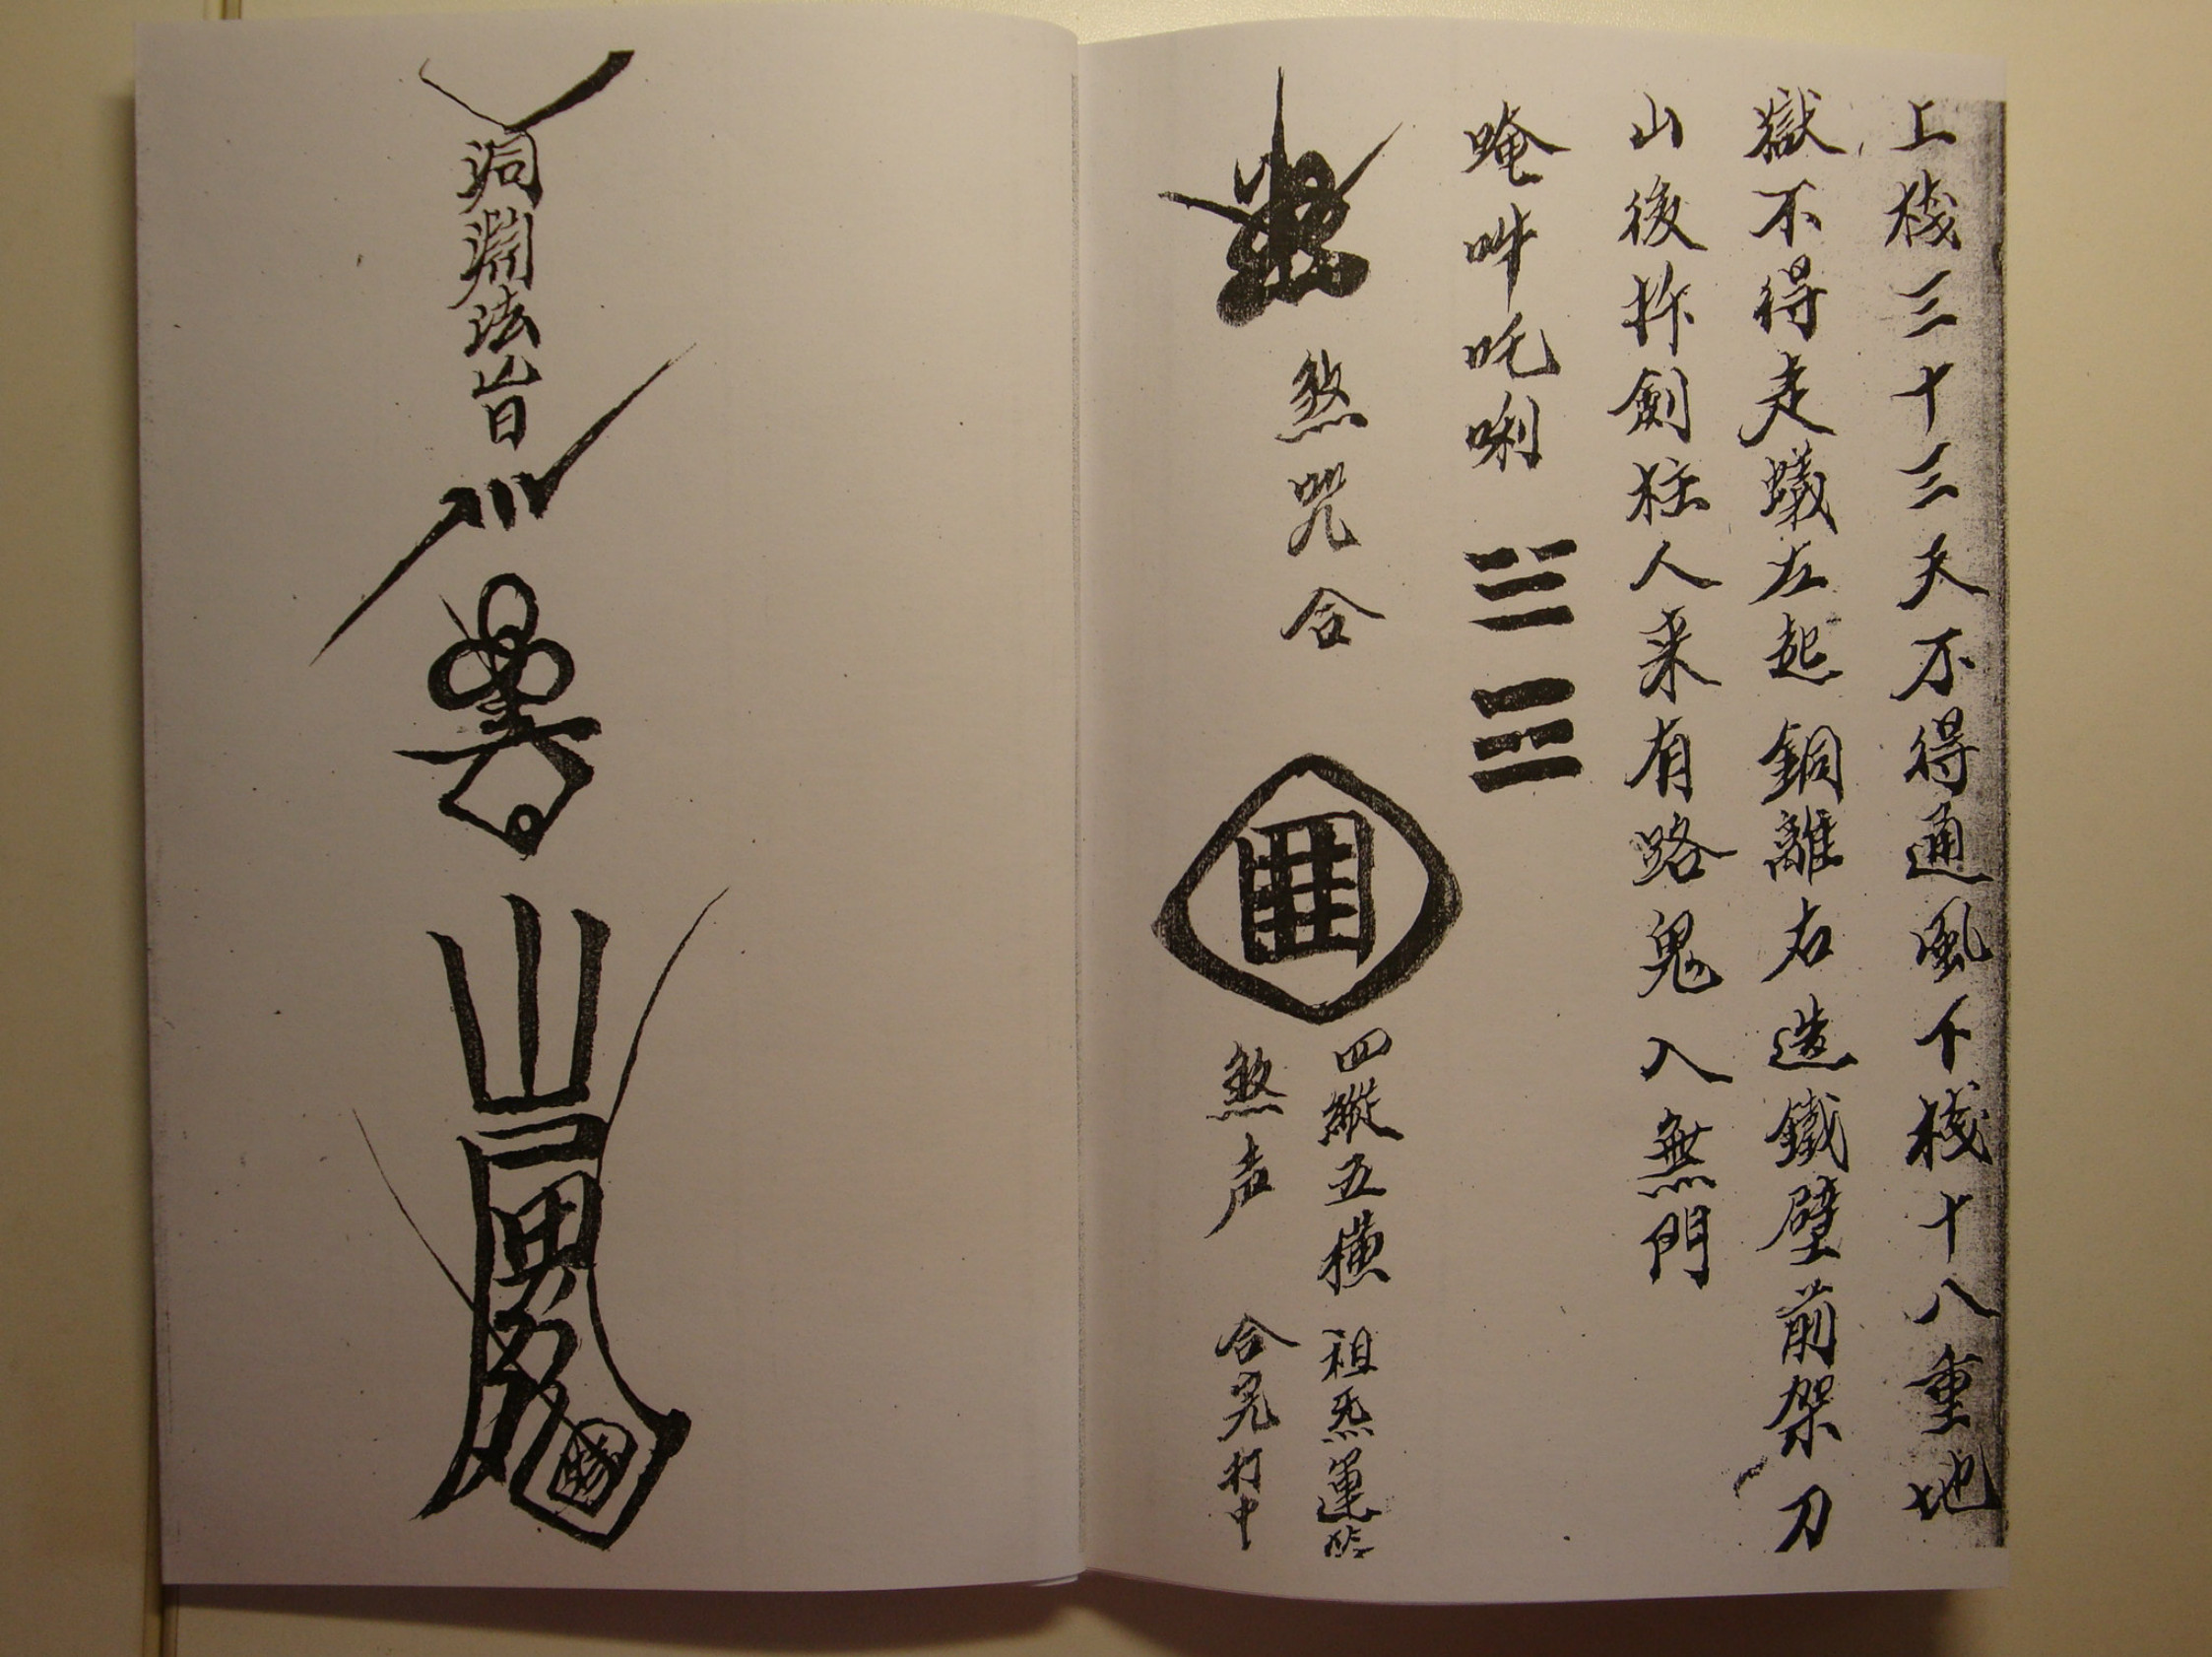 上栈三十三天不得通風下栈十八重地
獄不得走蟻左起銅離右造鐵壁前架刀
山後拃劍狂人来有路鬼入無門
唵吽吒唎
煞咒合
四縱五橫 祖炁運
煞声 合咒打中
洞淵法旨